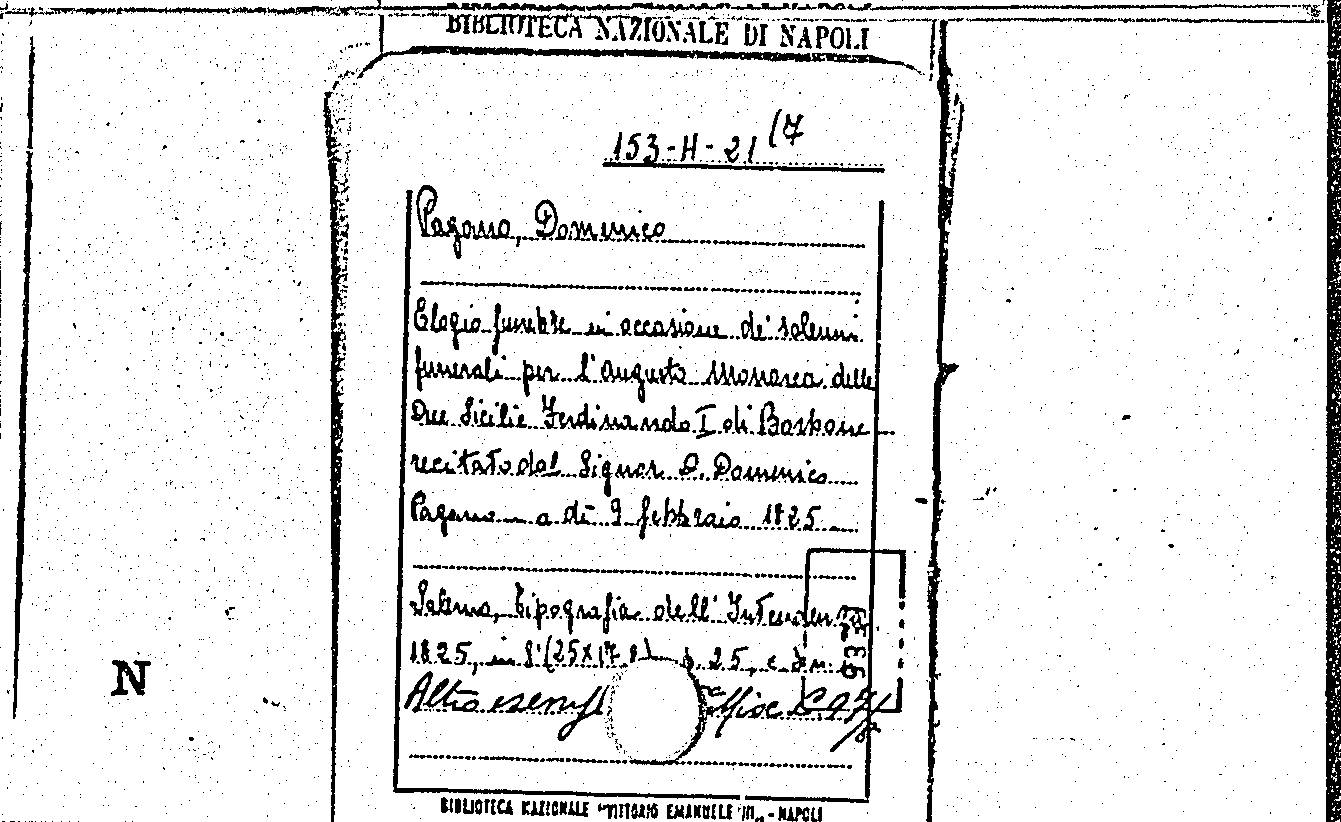 BIBLIOTECA NAZIONALE DI NAPOLI
153-H-21 (7
Pagano, Domenico
Elogio funebre in occasione de' solenni
funerali per l'augusto Monarca delle
Due Sicilie Ferdinando I di Borbone
recitato dal Signor D. Domenico
Pagano a dì 9 febbraio 1825
Salerno, Tipografia dell'
1825, in 8° (25x17 p. 25, e
Altro Misc
N
BIBLIOTECA NAZIONALE "VITTORIO EMANUELE III" - NAPOLI